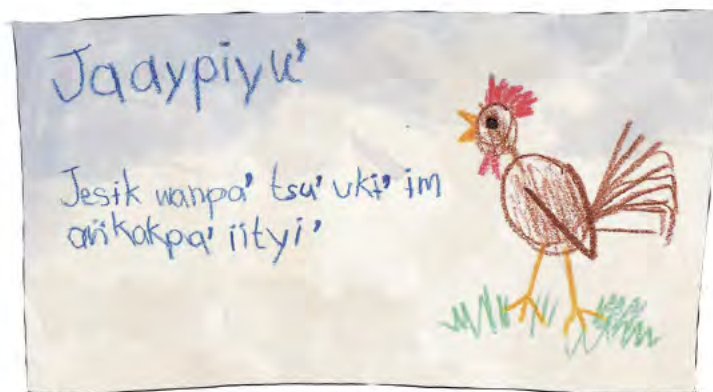 Jaaypiyu'
Jesik wanpa' tsu' uki' im
añkokpa' iityi'